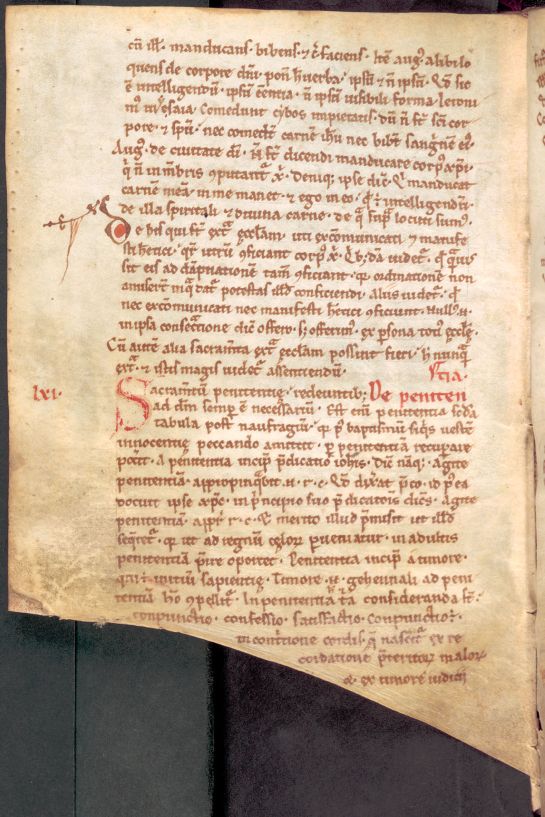 cū ill. manducans. bibens. ⁊ c̄ faciens. Itē Aug. alibi lo
quens de corpore dn̄i ponit h̄ verba. ipsū ⁊ n̄ ipsū. qd sic
ē intelligendū. ipsū eēntia. n̄ ipsū visibili forma.
Comedunt cybos impietatis. dū n̄ st̄ sc̄i cor
pore. ⁊ spū. nec comedt̄ carnē ih̄u nec bibt̄ sangnē eī.
Aug. de civitate dī. N̄ st̄ dicendi manducare corp' xp̄i.
q̄ n̄ in mēbris cputant̄ x̄. Deniq; ipse dic̄. Qī manducat
carnē meā in me manet. ⁊ ego in eo. qd ē intelligendū.
de illa spiritali. ⁊ divina carne. de q̄ sup̄ locuti sum'.
De his qui st̄ extᵃ ecclam. uti excōmunicati ⁊ manife
sti hetici. qr̄ utrū cficiant corp' x̄. Qb'dā videt̄. qd quāvis
sit eis ad dāpnatione tam̄ cficiant. qr̄ ordinatione non
amiserūt in q̄ dat̄ potestas illd conficiendi. Aliis videt̄. qd
nec excōmunicati nec manifesti h̄etici cficiunt. Null' n̄.
in ipsa consectione dic̄ offero. s; offerim'. ex psona toti' eccle.
Cū autē alia sacramta extᵃ ecclam possint fieri. h̄ nunq̄
extᵃ. ⁊ istis magis videt̄ assentiendū.
lxi. Sacramtū penitentie. redeuntib; De peniten tia.
ad dm̄ semp ē necessariū. Est enī penitentia scda
tabula post naufragiū. qr̄ p' baptismū siqs vestē
innocentie peccando amittit. p penitentiā recupare
potit. A penitentia incip̄ p̄dicatio ioh̄is. Dic̄ naq. Agite
penitentiā. appropinqbit n̄. r. c. Qd dixat p̄co. id p ea
docuit ipse xp̄c. in p̄ncipio sue p̄dicatōis dics. Agite
penitentiā. appr̄. r. c. ⁊ merito illud p̄misit ut illd
seqret̄. qr̄ ut ad regnū celoꝝ pveniatur. in adultis
penitentiā p̄ire oportet. Penitentia incip̄ a timore.
initiū sapientie. Timore n̄. gehennali ad peni
tentiā hō cpellit̄. In penitentia tᵃ consideranda st̄.
conpunctio. confessio. satisfactio. Conpunctio ē.
in contritione cordis. q̄ nascit̄ ex re
cordatione p̄teritoꝝ maloꝝ
⁊ ex timore iudicii